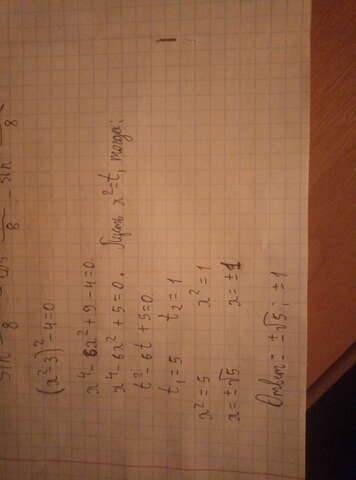 (x²-3)²-4=0
x⁴-6x²+9-4=0
x⁴-6x²+5=0. Пусть x²=t, тогда:
t²-6t+5=0
t₁=5 t₂=1
x²=5 x²=1
x=±√5 x=±1
Ответ: ±√5; ±1